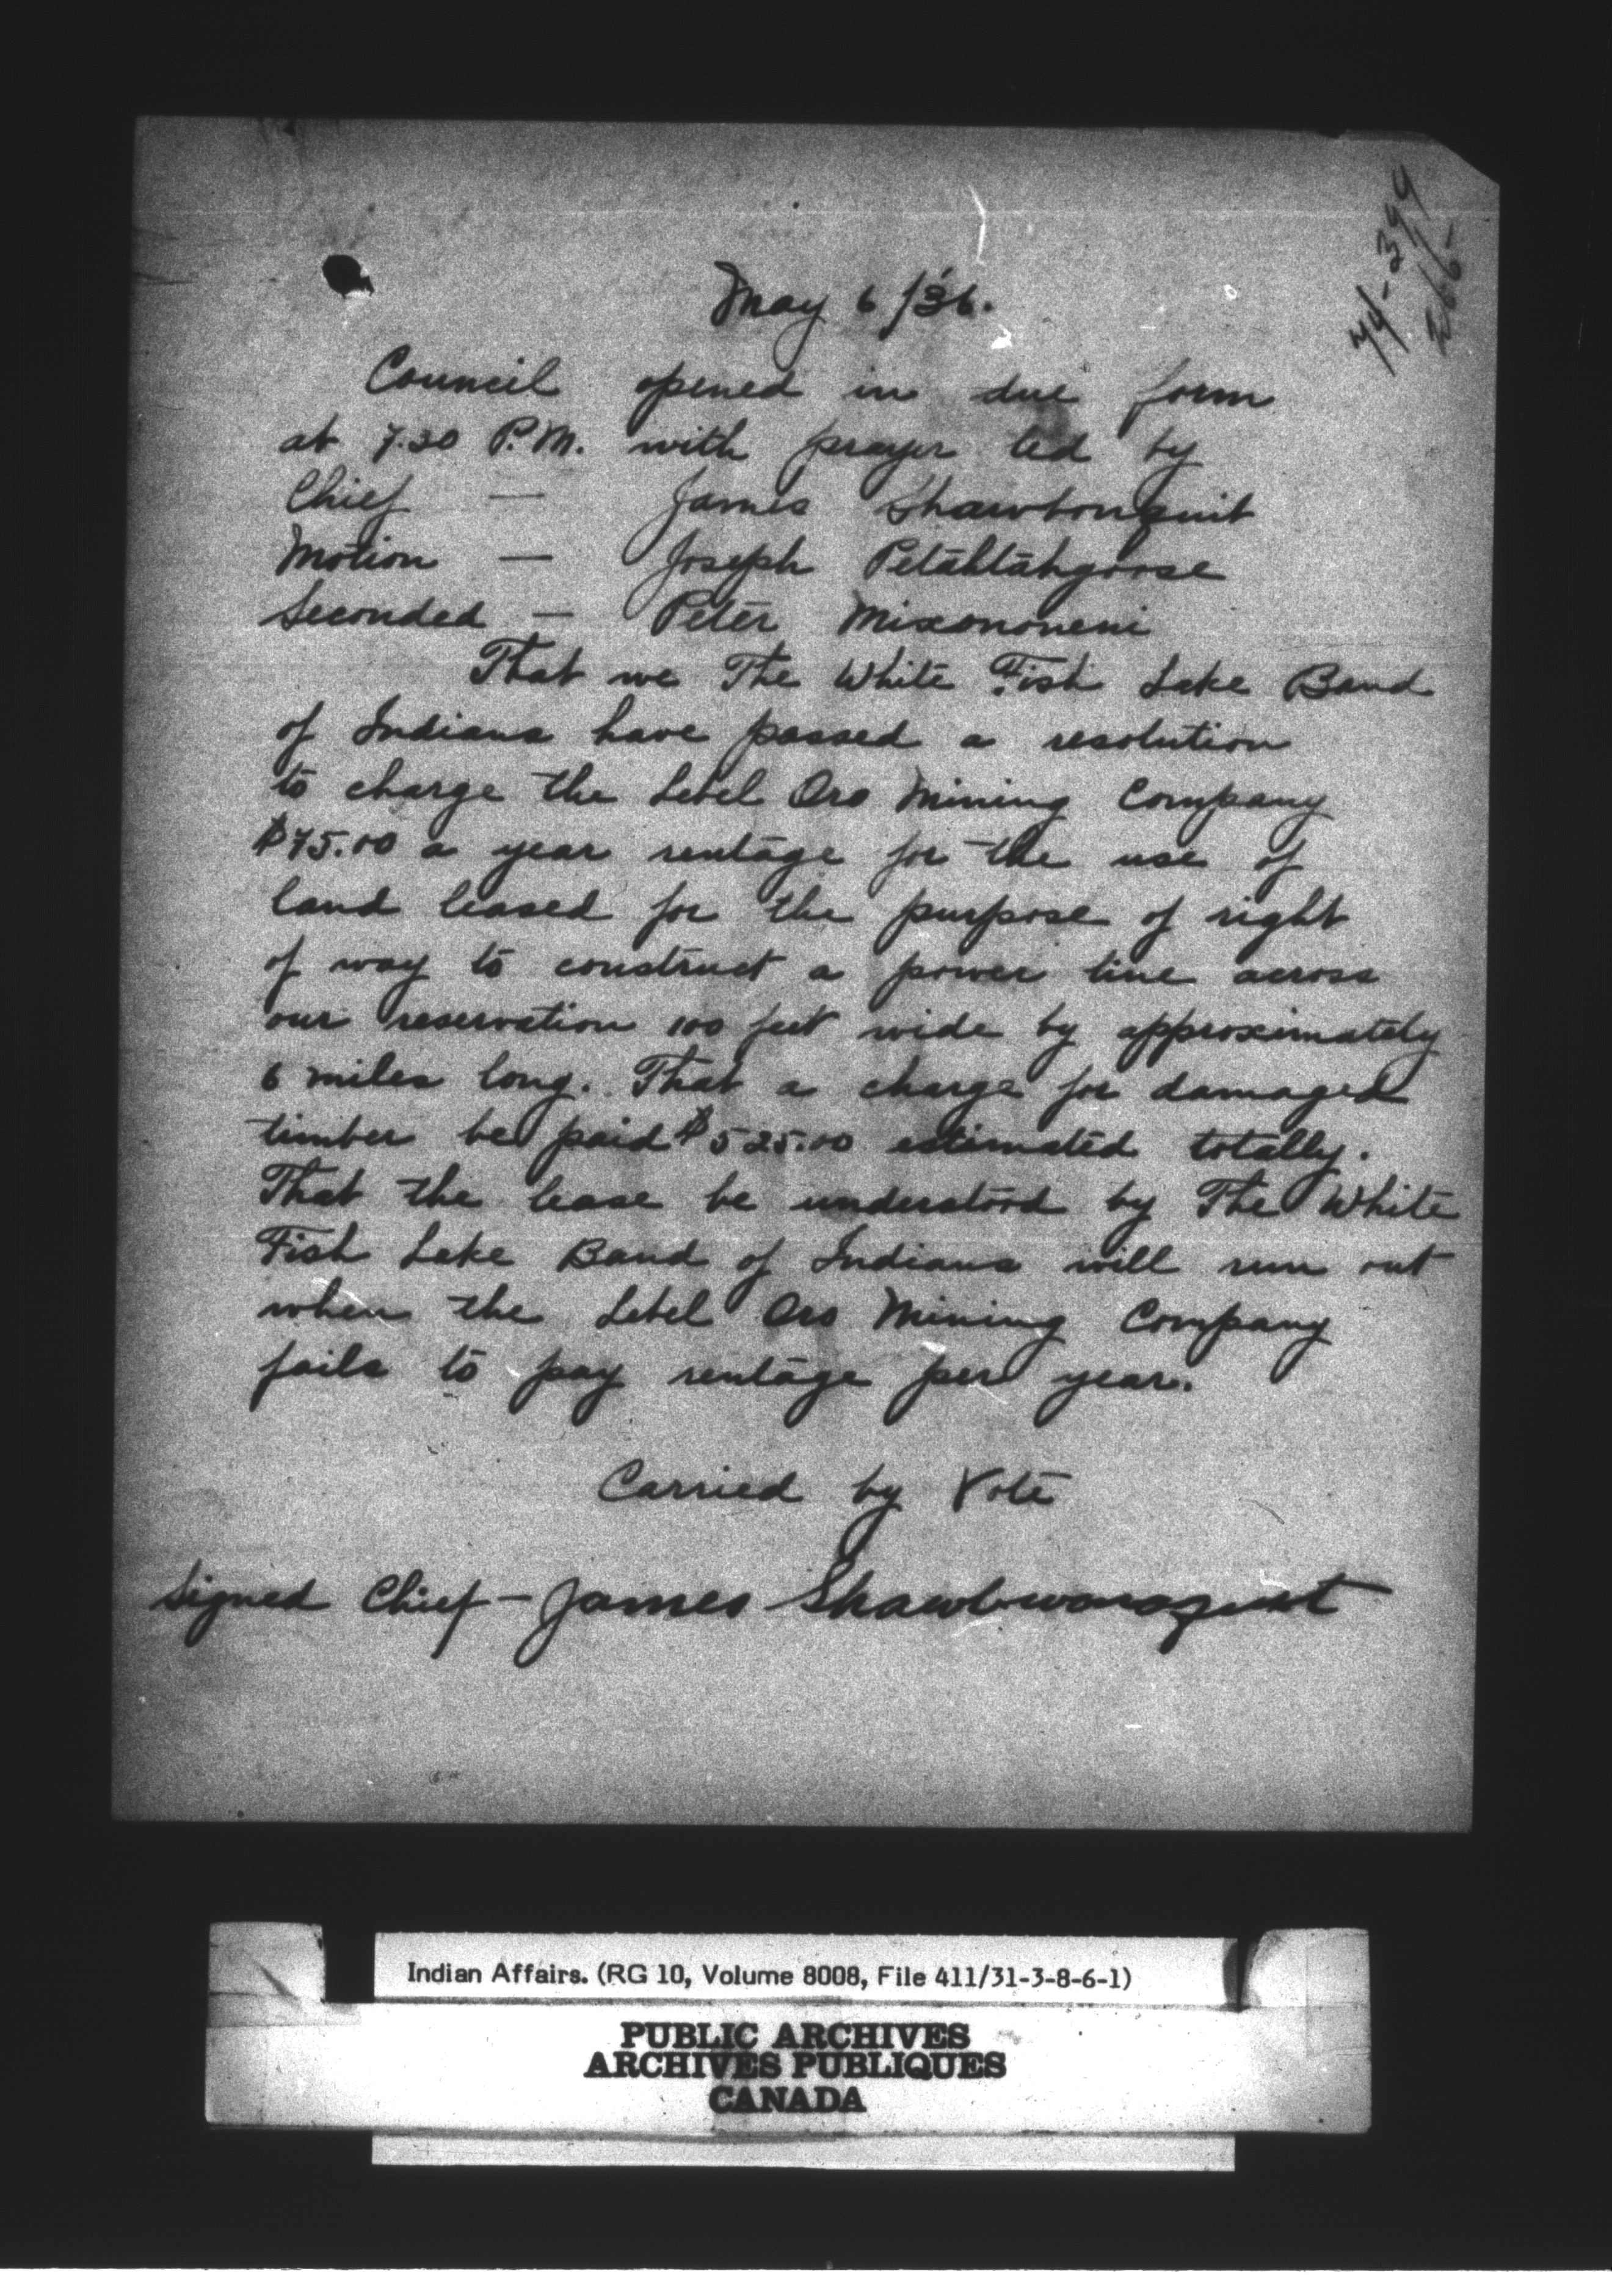 74-399
May 6/36.
Council opened in due form
at 7.30 P.M. with prayer led by
Chief — James Shawbonquit
Motion — Joseph Petahtahgoose
Seconded — Peter Mixenoneni
That we The White Fish Lake Band
of Indians have passed a resolution
to charge the Lebel Oro Mining Company
$75.00 a year rentage for the use of
land leased for the purpose of right
of way to construct a power line across
our reservation 100 feet wide by approximately
6 miles long. That a charge for damaged
timber be paid $525.00 estimated totally.
That the lease be understood by The White
Fish Lake Band of Indians will run out
when the Lebel Oro Mining Company
fails to pay rentage per year.
Carried by Vote
Signed Chief - James Shawbwonaquit
Indian Affairs. (RG 10, Volume 8008, File 411/31-3-8-6-1)
PUBLIC ARCHIVES
ARCHIVES PUBLIQUES
CANADA